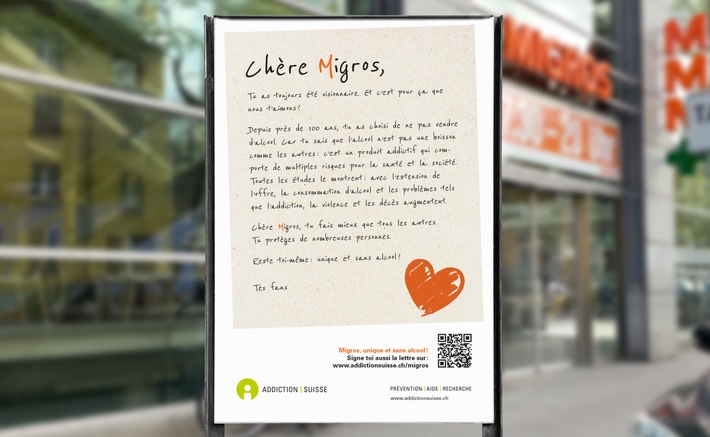 Chère Migros,
Tu as toujours été visionnaire. Et c'est pour ça que
nous t'aimons!
Depuis près de 100 ans, tu as choisi de ne pas vendre
d'alcool. Car tu sais que l'alcool n'est pas une boisson
comme les autres: c'est un produit addictif qui com-
porte de multiples risques pour la santé et la société.
Toutes les études le montrent: avec l'extension de
l'offre, la consommation d'alcool et les problèmes tels
que l'addiction, la violence et les décès augmentent.
Chère Migros, tu fais mieux que tous les autres.
Tu protèges de nombreuses personnes.
Reste toi-même: unique et sans alcool!
Tes fans
Migros, unique et sans alcool!
Signe toi aussi la lettre sur:
www.addictionsuisse.ch/migros
ADDICTION | SUISSE
PRÉVENTION | AIDE | RECHERCHE
www.addictionsuisse.ch
MIGROS